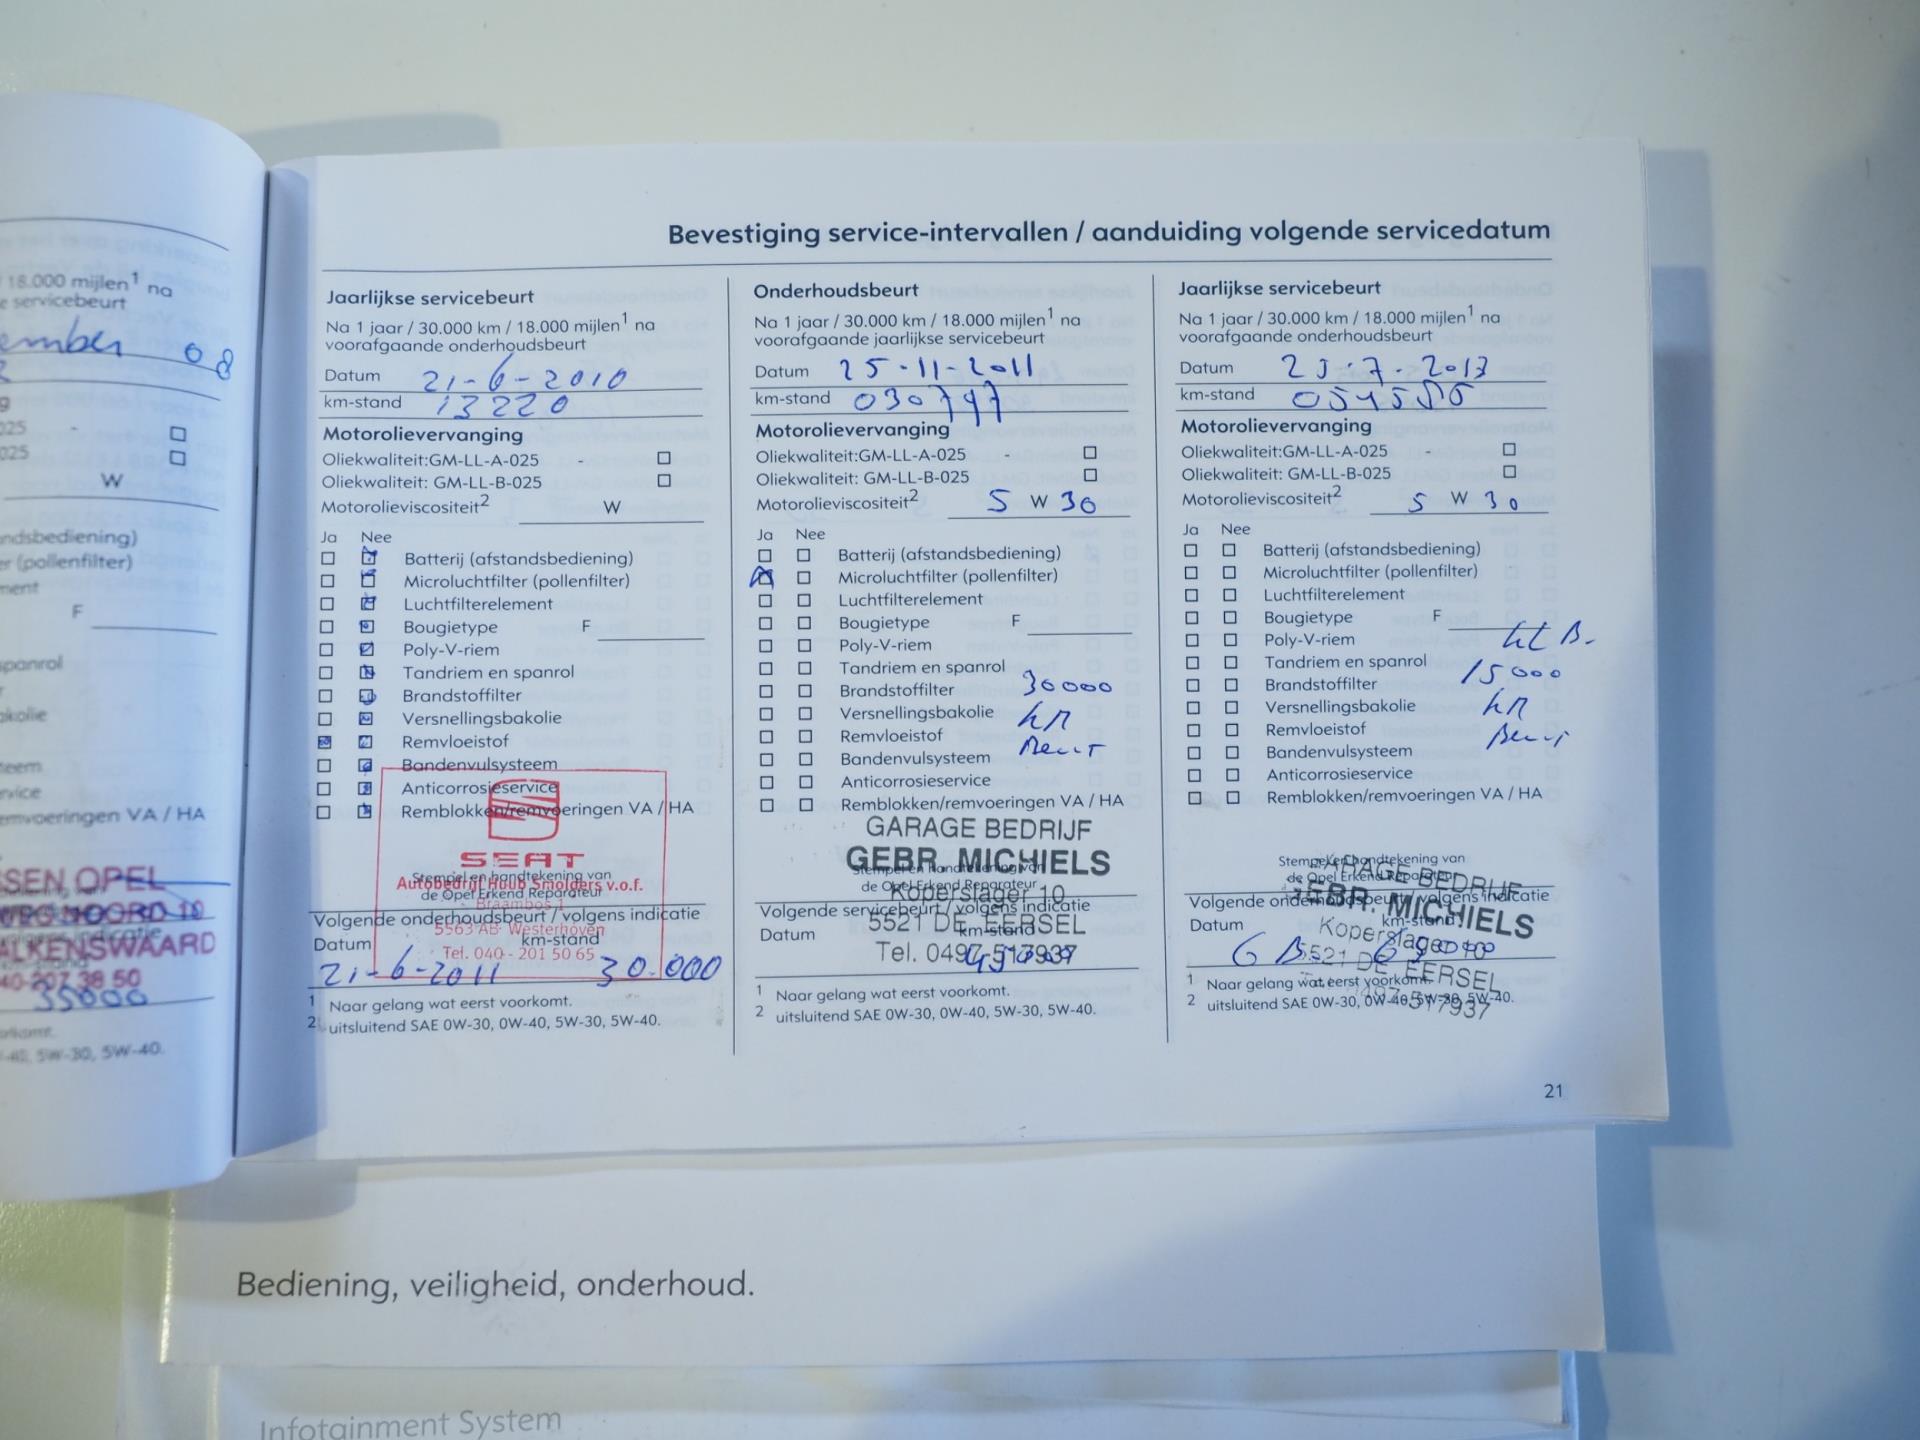 18.000 mijlen¹ na
servicebeurt
ember 08
025
025
W
(pollenfilter)
F
spanrol
VA / HA
SSEN OPEL
NOORD 10
ALKENSWAARD
40-207 38 50
35000
5W-30, 5W-40.
Bevestiging service-intervallen / aanduiding volgende servicedatum
Jaarlijkse servicebeurt
Na 1 jaar / 30.000 km / 18.000 mijlen¹ na
voorafgaande onderhoudsbeurt
Datum 21-6-2010
km-stand 13220
Motorolievervanging
Oliekwaliteit:GM-LL-A-025 -
Oliekwaliteit: GM-LL-B-025
Motorolieviscositeit² W
Ja Nee
Batterij (afstandsbediening)
Microluchtfilter (pollenfilter)
Luchtfilterelement
Bougietype F
Poly-V-riem
Tandriem en spanrol
Brandstoffilter
Versnellingsbakolie
Remvloeistof
Bandenvulsysteem
Anticorrosieservice
Remblokken/remvoeringen VA / HA
SEAT
Stempel en handtekening van
Autobedrijf Huub Smolders v.o.f.
de Opel Erkend Reparateur
Braambos 1
Volgende onderhoudsbeurt / volgens indicatie
5563 AB Westerhoven
Datum km-stand
Tel. 040 - 201 50 65
21-6-2011 30.000
1 Naar gelang wat eerst voorkomt.
2 uitsluitend SAE 0W-30, 0W-40, 5W-30, 5W-40.
Onderhoudsbeurt
Na 1 jaar / 30.000 km / 18.000 mijlen¹ na
voorafgaande jaarlijkse servicebeurt
Datum 25-11-2011
km-stand 030747
Motorolievervanging
Oliekwaliteit:GM-LL-A-025 -
Oliekwaliteit: GM-LL-B-025
Motorolieviscositeit² 5 W 30
Ja Nee
Batterij (afstandsbediening)
Microluchtfilter (pollenfilter)
Luchtfilterelement
Bougietype F
Poly-V-riem
Tandriem en spanrol
Brandstoffilter 30000
Versnellingsbakolie KM
Remvloeistof Beurt
Bandenvulsysteem
Anticorrosieservice
Remblokken/remvoeringen VA / HA
GARAGE BEDRIJF
GEBR. MICHIELS
Stempel en handtekening van
de Opel Erkend Reparateur
Koperslager 10
Volgende servicebeurt / volgens indicatie
5521 DE EERSEL
Datum km-stand
Tel. 0497-517937
45000
1 Naar gelang wat eerst voorkomt.
2 uitsluitend SAE 0W-30, 0W-40, 5W-30, 5W-40.
Jaarlijkse servicebeurt
Na 1 jaar / 30.000 km / 18.000 mijlen¹ na
voorafgaande onderhoudsbeurt
Datum 25-7-2013
km-stand
Motorolievervanging
Oliekwaliteit:GM-LL-A-025 -
Oliekwaliteit: GM-LL-B-025
Motorolieviscositeit² 5 W 30
Ja Nee
Batterij (afstandsbediening)
Microluchtfilter (pollenfilter)
Luchtfilterelement
Bougietype F
Poly-V-riem
Tandriem en spanrol 15000
Brandstoffilter
Versnellingsbakolie KM
Remvloeistof Beurt
Bandenvulsysteem
Anticorrosieservice
Remblokken/remvoeringen VA / HA
Stempel en handtekening van
GARAGE BEDRIJF
de Opel Erkend Reparateur
GEBR. MICHIELS
Volgende onderhoudsbeurt / volgens indicatie
Datum km-stand
Koperslager 10
5521 DE EERSEL
1 Naar gelang wat eerst voorkomt.
2 uitsluitend SAE 0W-30, 0W-40, 5W-30, 5W-40.
0497-517937
21
Bediening, veiligheid, onderhoud.
Infotainment System